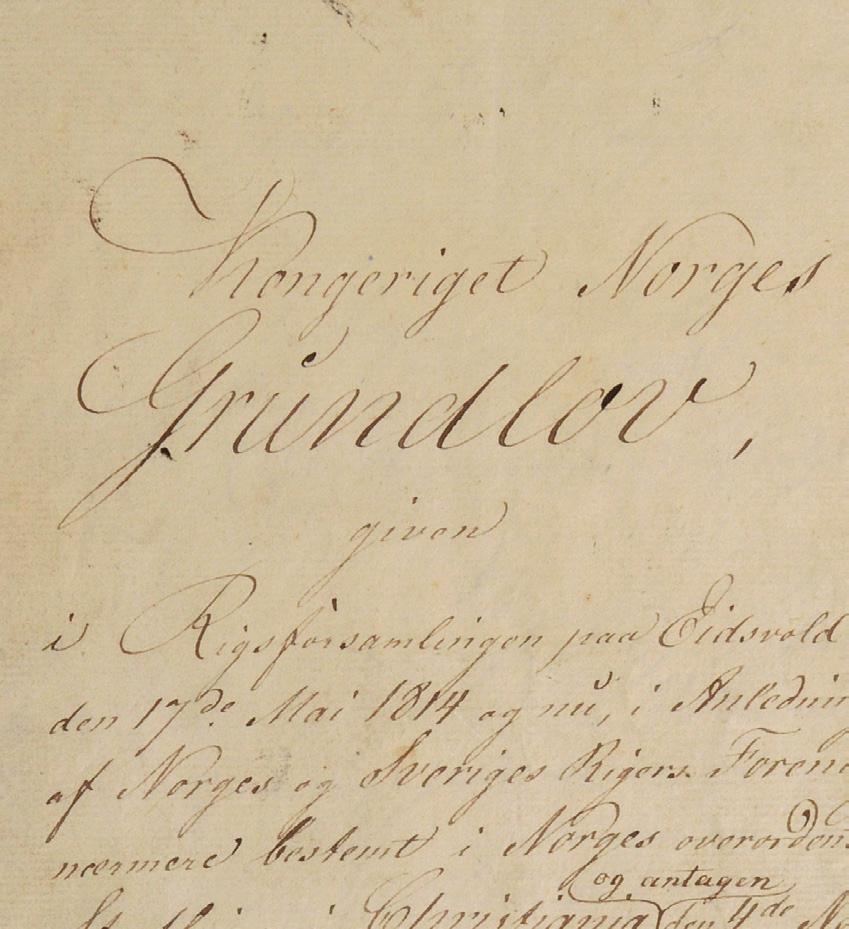 Kongeriget Norges
Grundlov,
given
i Rigsforsamlingen paa Eidsvold
den 17de Mai 1814 og nu, i Anlednin
af Norges og Sveriges Rigers Foren
nærmere bestemt i Norges overorden
og antagen
Christiania den 4de No